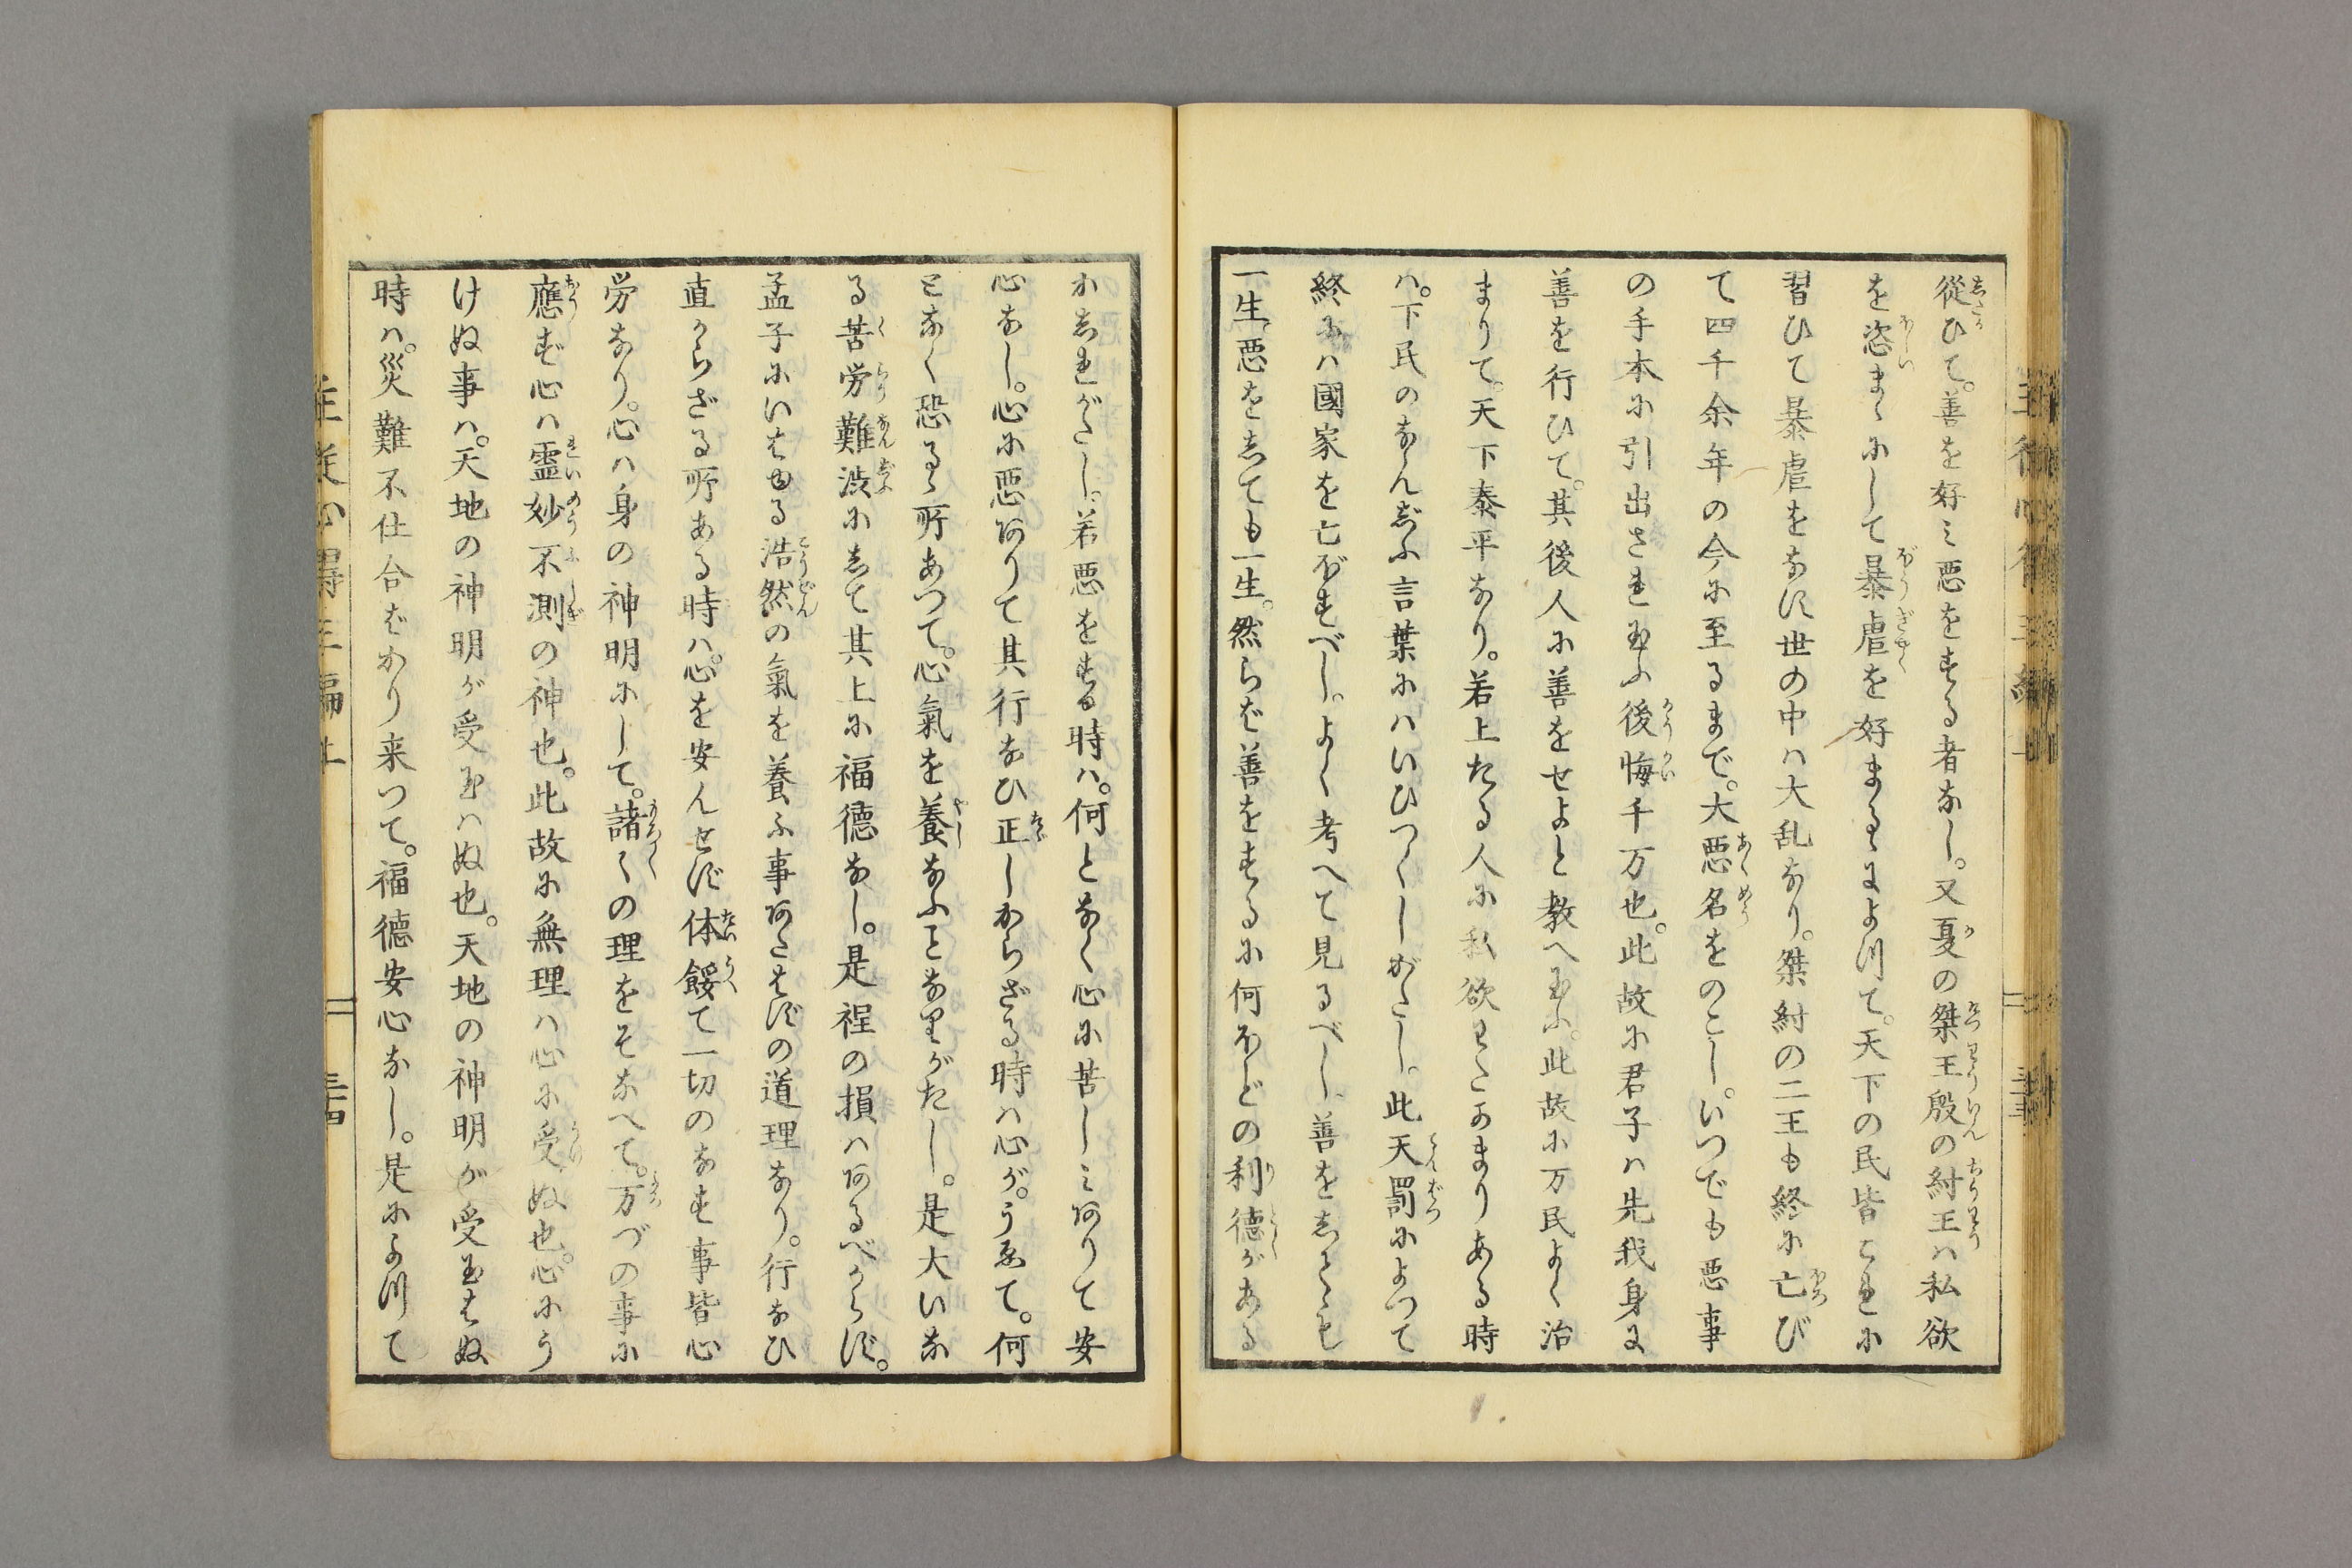 従ひて。善を好ミ悪をする者なし。又夏の桀王殷の紂王ハ私欲
を恣まゝにして暴虐を好まるゝによつて。天下の民皆これに
習ひて暴虐をなす世の中ハ大乱なり。桀紂の二王も終に亡び
て四千余年の今に至るまで。大悪名をのこし。いつでも悪事
の手本に引出され玉ふ後悔千万也。此故に君子ハ先我身に
善を行ひて。其後人に善をせよと教へ玉ふ。此故に万民よく治
まりて。天下泰平なり。若上たる人に私欲わたかまりある時
ハ。下民のなんぎふ言葉にハいひつくしがたし。此天罰によつて
終にハ國家を亡ぼすべし。よく考へて見るべし、善をしたゝも
一生、悪をしても一生。然らば善をするに何ほどの利徳がある
かしれがたし。若悪をする時ハ。何となく心に苦しミありて安
心なし。心に悪ありて其行なひ正しからざる時ハ心が。うゑて。何
となく恐るゝ所あつて。心氣を養なふことなりがたし。是大いな
る苦労難渋にして其上に福德なし。是程の損ハあるべからず。
孟子にいはゆる浩然の氣を養ふ事あたはずの道理なり。行なひ
直からざる所ある時ハ。心を安んせず体餒て一切のなす事皆心
労なり。心ハ身の神明にして。諸〱の理をそなへて。万づの事に
應ず心ハ霊妙不測の神也。此故に無理ハ心に受ぬ也。心にう
けぬ事ハ。天地の神明が受玉ハぬ也。天地の神明が受玉はぬ
時ハ。災難不仕合ばかり来つて。福德安心なし。是によつて
三十四